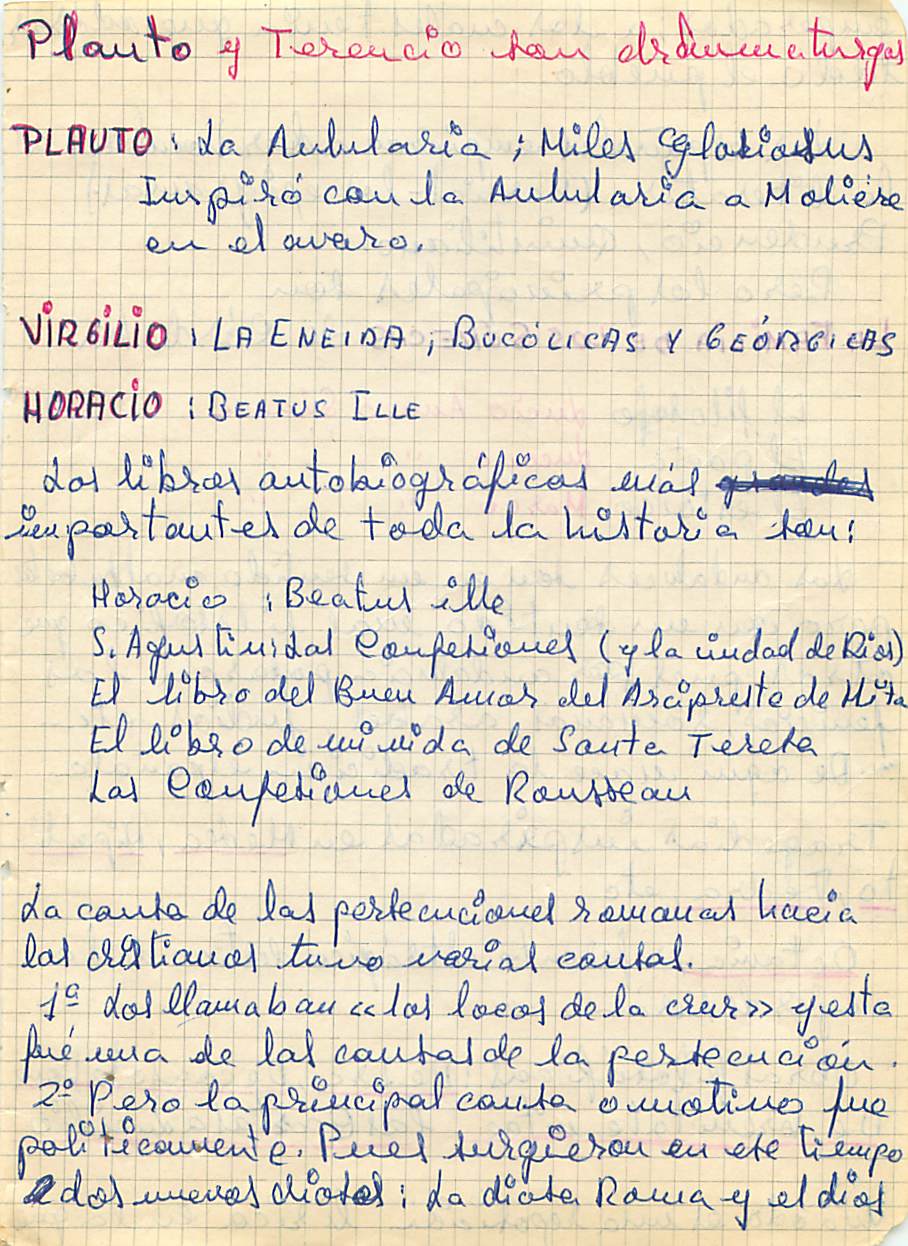 Plauto y Terencio son drammaturgos
PLAUTO: La Aulularia; Miles Gloriosus
Inspiró con la Aulularia a Moliére
en el avaro.
VIRGILIO: LA ENEIDA; BUCÓLICAS Y GEÓRGICAS
HORACIO: BEATUS ILLE
Los libros autobiográficos más grandes
importantes de toda la historia son:
Horacio: Beatus ille
S. Agustin: Las Confesiones (y la ciudad de Dios)
El libro del Buen Amor del Arcipreste de Hita
El libro de mi vida de Santa Teresa
Las Confesiones de Rousseau
La causa de las persecuciones romanas hacia
los cristianos tuvo varias causas.
1º Los llamaban «los locos de la cruz» y esta
fué una de las causas de la persecución.
2º Pero la principal causa o motivo fue
politicamente. Pues surgieron en ese tiempo
dos nuevos dioses: La diosa Roma y el dios